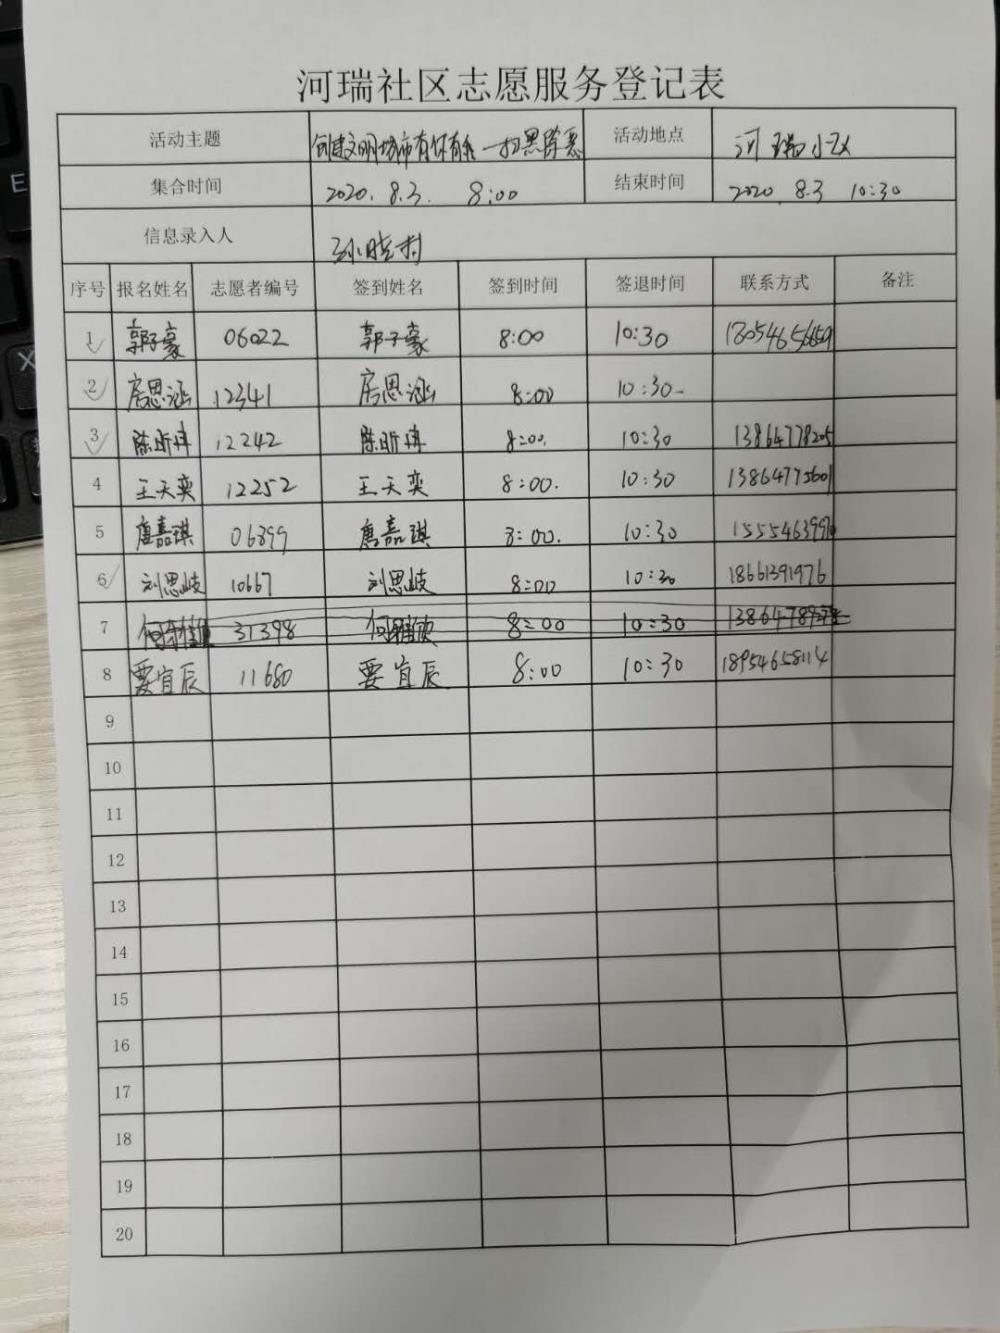 河瑞社区志愿服务登记表
活动主题 创建文明城市有你有我—扫黑除恶 活动地点 河瑞小区
集合时间 2020.8.3. 8:00 结束时间 2020.8.3 10:30
信息录入人 孙晓村
序号 报名姓名 志愿者编号 签到姓名 签到时间 签退时间 联系方式 备注
1 郭子豪 06022 郭子豪 8:00 10:30
2 房思涵 12341 房思涵 8:00 10:30
3 陈昕琪 12242 陈昕琪 8:00. 10:30 13864778205
4 王天奕 12252 王天奕 8:00. 10:30 13864775601
5 唐嘉琪 06899 唐嘉琪 8:00. 10:30
6 刘思岐 10667 刘思岐 8:00 10:30 18661391976
7 31398 8:00 10:30
8 要宜辰 11680 要宜辰 8:00 10:30 18954658114
9
10
11
12
13
14
15
16
17
18
19
20